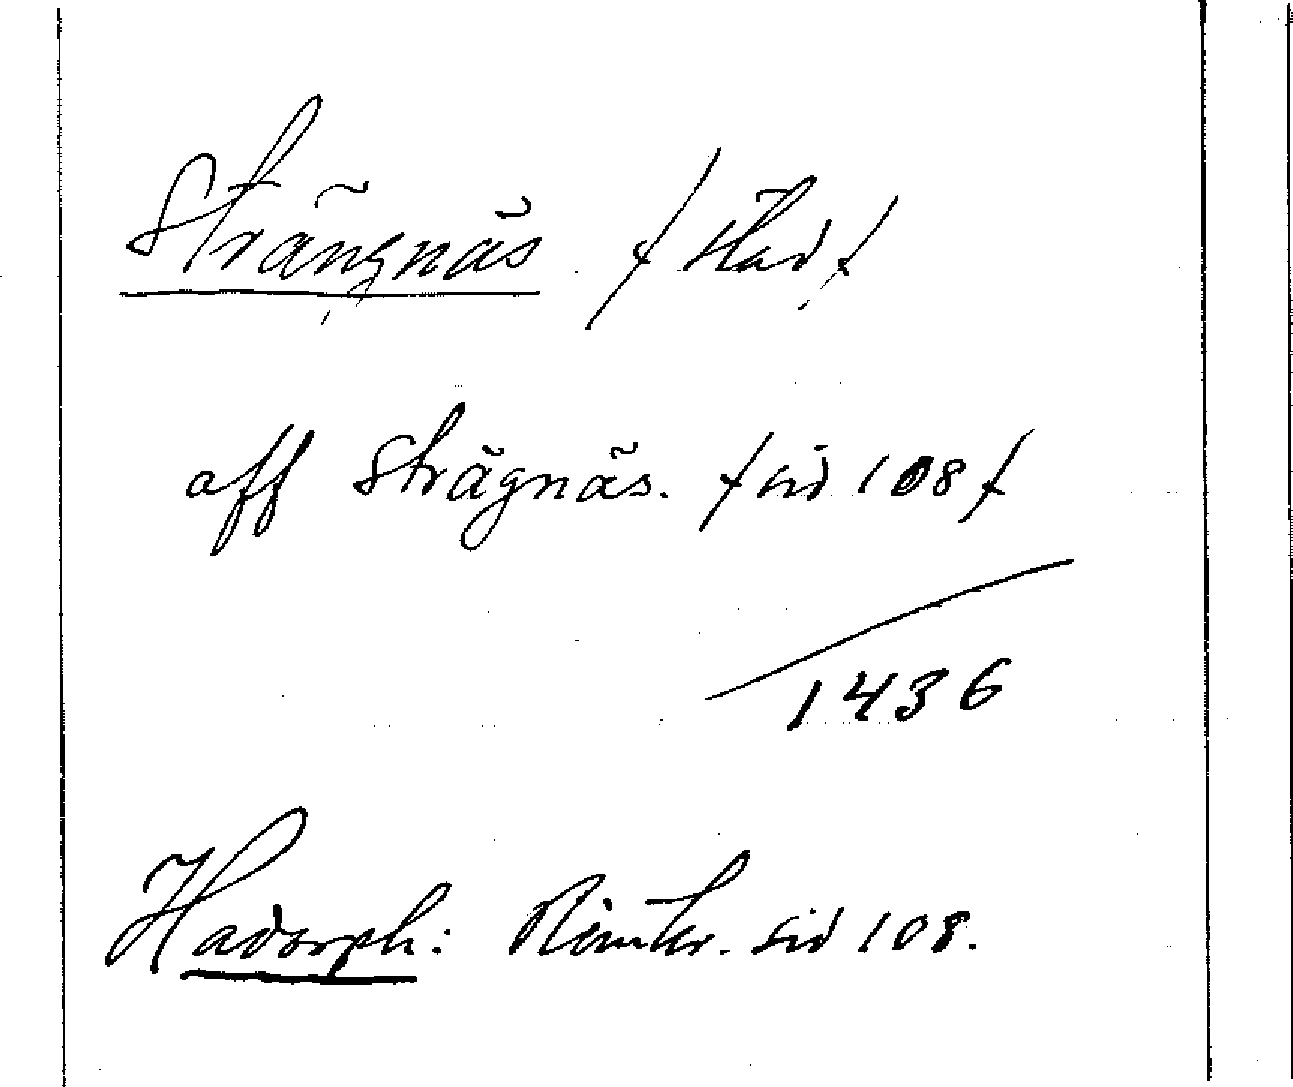 Strängnäs /stad/
aff Strägnäs. /sid 108/
1436
Hadorph: Rimkr. sid 108.